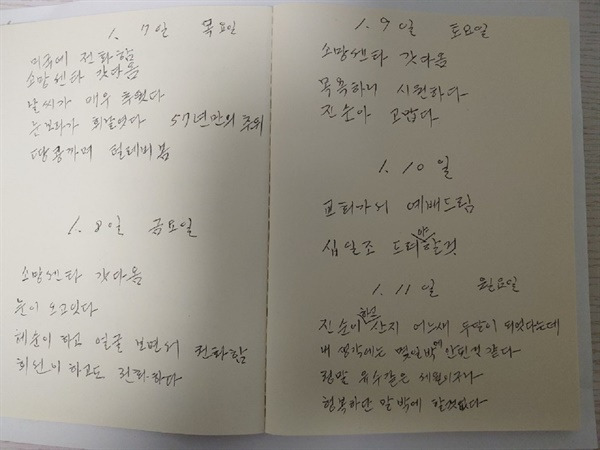 1. 7일 목요일
미국에 전화함
소망쎈타 갓다옴
날씨가 매우 추웠다
눈보라가 휘날엿다 57년만의 추위
땅콩까며 텔레비봄
1. 8일 금요일
소망쎈타 갓다옴
눈이 오고잇다
혜순이 하고 얼굴 보면서 전화함
희선이 하고도 전화하다
1. 9일 토요일
소망쎈타 갓다옴
목욕하니 시원하다
진순아 고맙다
1. 10일
교회가서 예배드림
십일조 드려야할것
1. 11일 월요일
진순이하고 산지 어느새 두달이 되엇다는데
내 생각에는 몇일밖에 안된것 같다
정말 유수같은 세월이구나
행복하단 말 밖에 할것없다